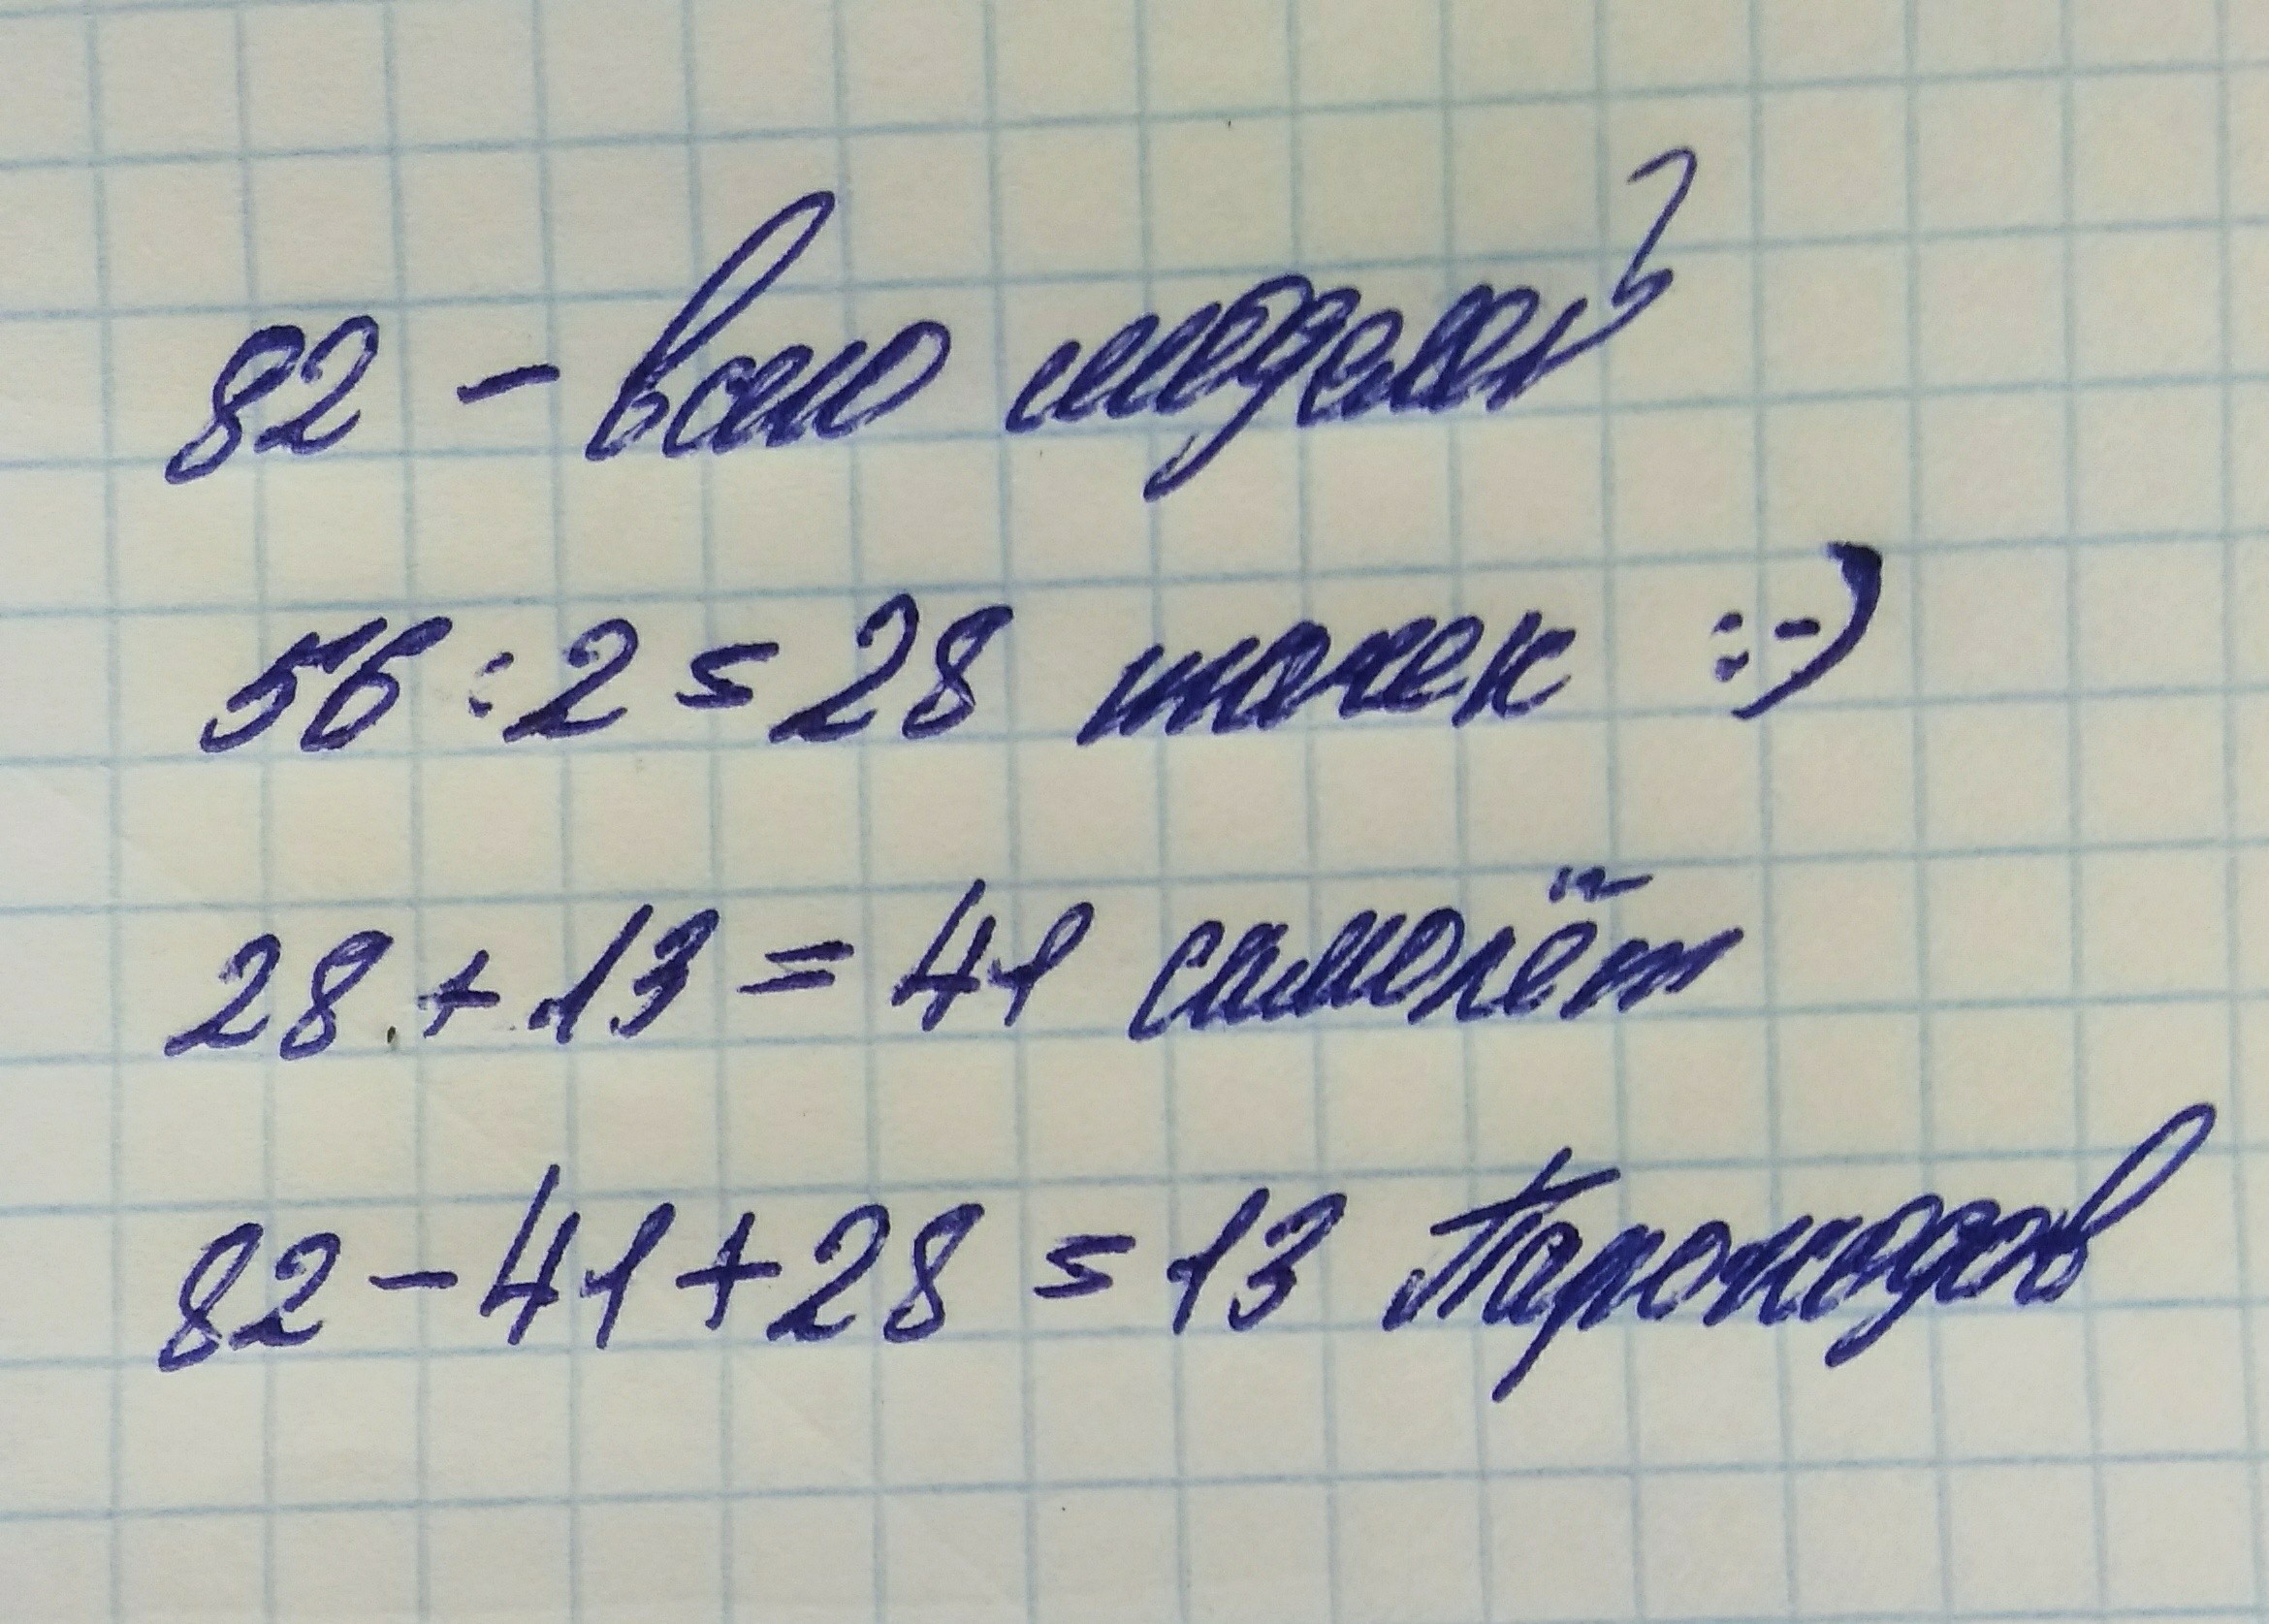 82 - всего моделей
56 : 2 = 28 точек :-)
28 + 13 = 41 самолёт
82 - 41 + 28 = 13 Пароходов